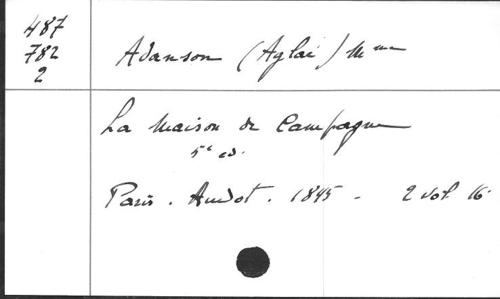 487
782
2
Adanson (Aglaé) Mme
La Maison de Campagne
5e éd.
Paris. Audot. 1845 - 2 vol 16